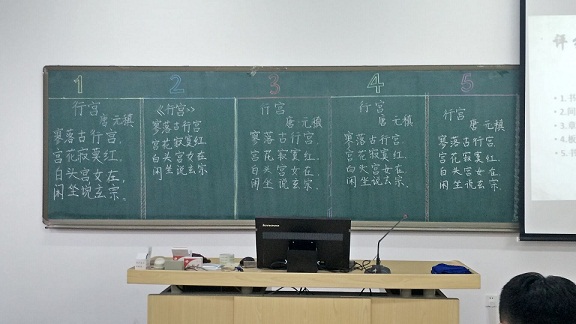 1
行宫
唐 元稹
寥落古行宫,
宫花寂寞红.
白头宫女在,
闲坐说玄宗.
2
《行宫》
寥落古行宫
宫花寂寞红
白头宫女在
闲坐说玄宗
3
行宫
唐 元稹
寥落古行宫
宫花寂寞红
白头宫女在
闲坐说玄宗
4
行宫
唐 元稹
寥落古行宫
宫花寂寞红
白头宫女在
闲坐说玄宗
5
行宫
唐 元稹
寥落古行宫
宫花寂寞红
白头宫女在
闲坐说玄宗
lenovo
评
1. 书
3. 章
5. 书